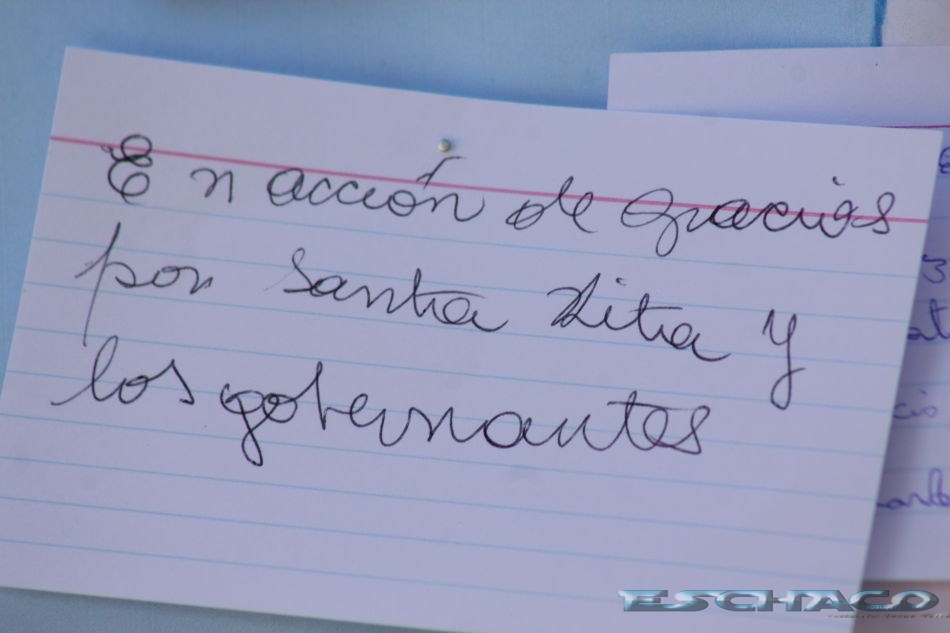 En acción de gracias
por Santa Rita y
los gobernantes
ESCHACO